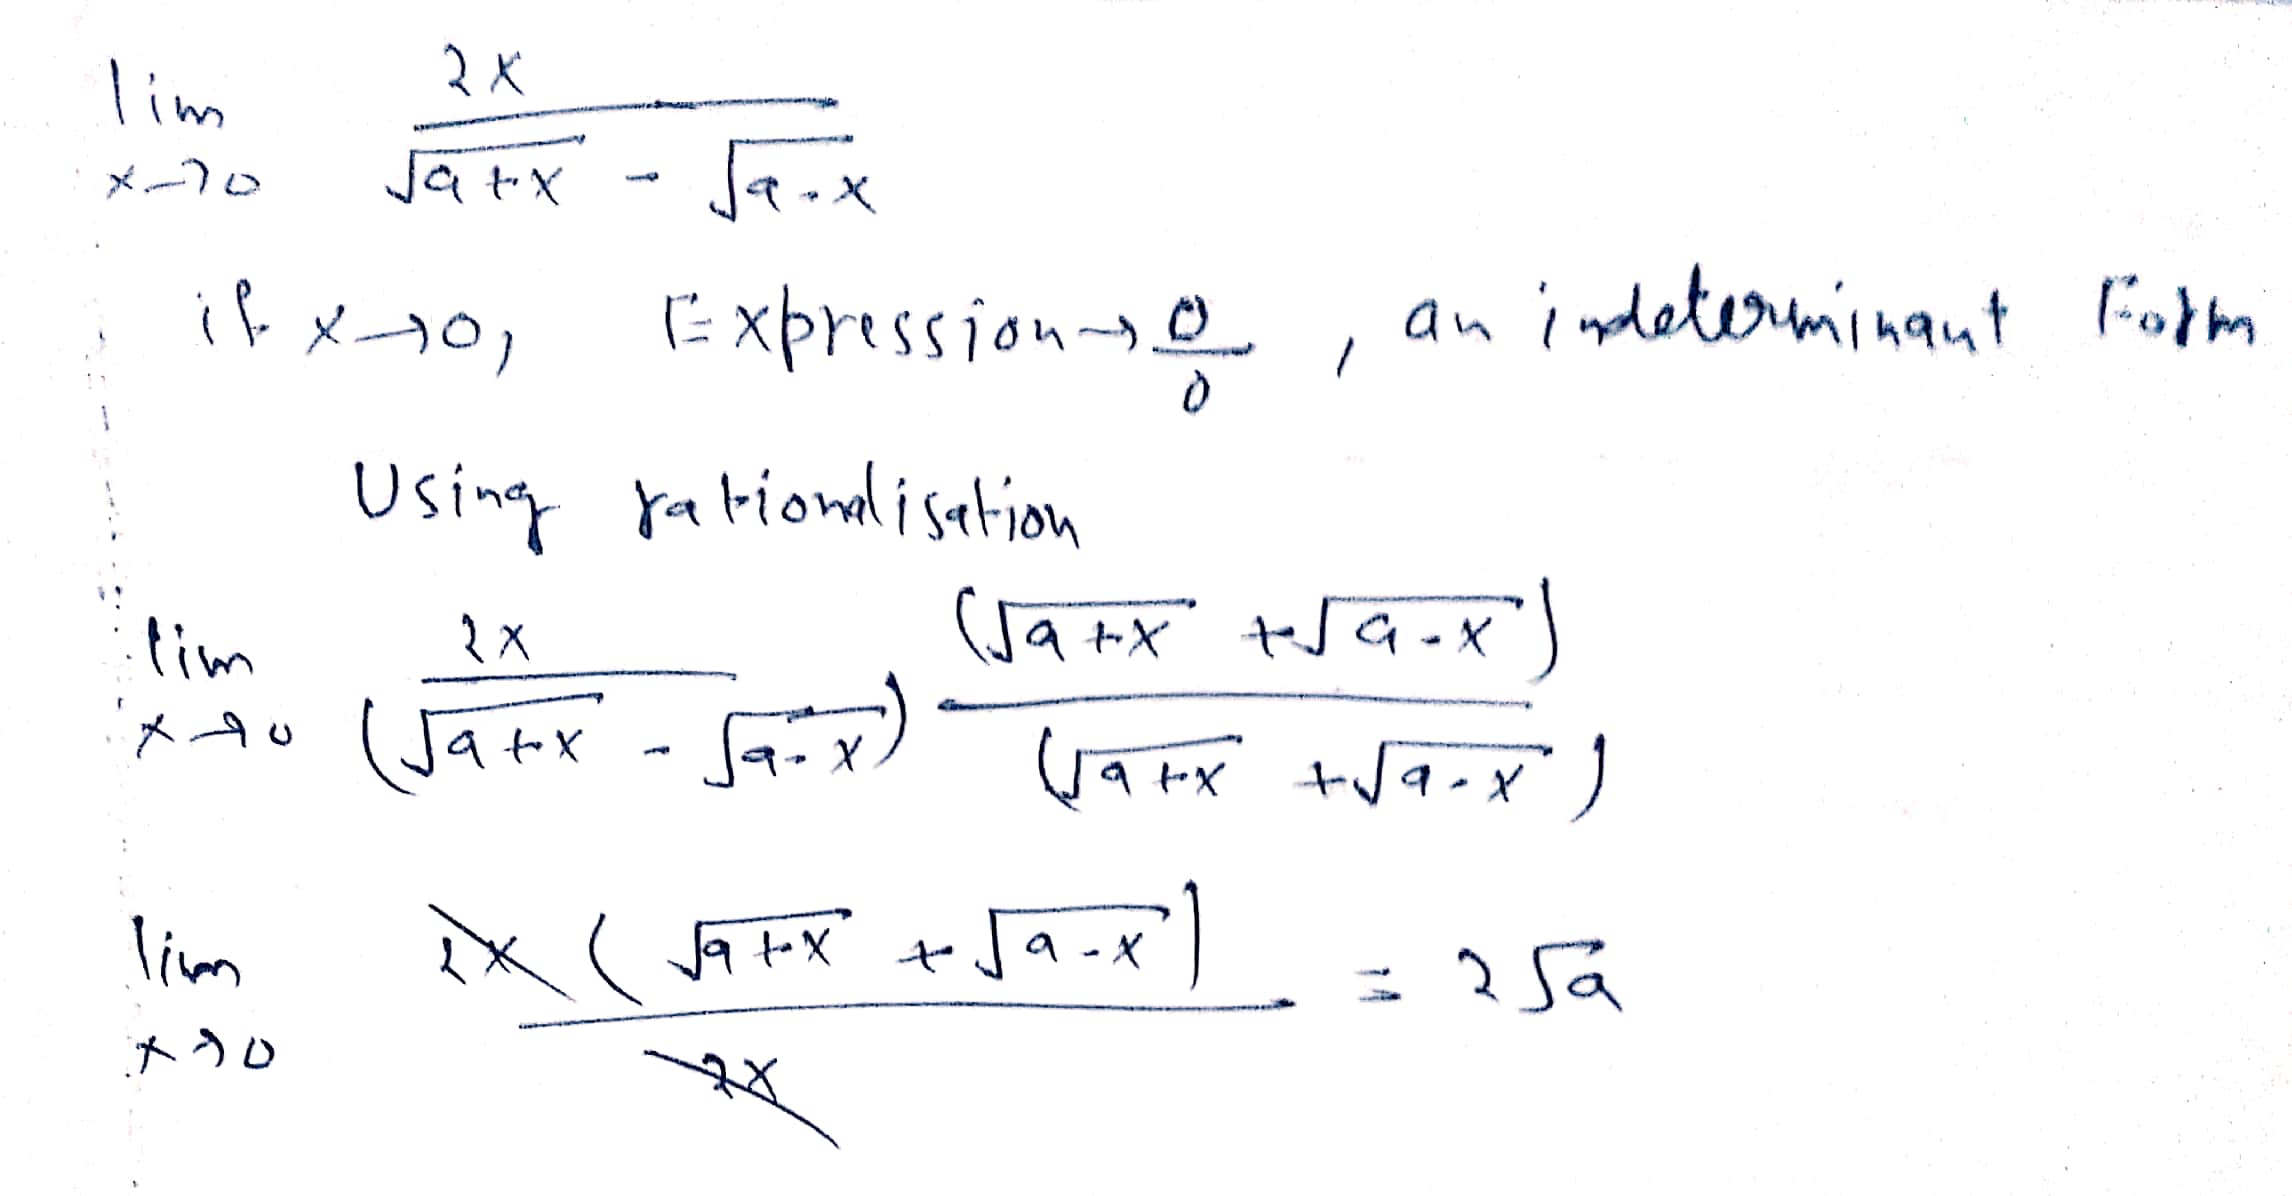 lim 2x / (√a+x - √a-x)
x→0
if x→0, Expression→ 0/0 , an indeterminant Form
Using rationalisation
lim 2x / (√a+x - √a-x) (√a+x + √a-x) / (√a+x + √a-x)
x→0
lim 2x (√a+x + √a-x) / 2x = 2√a
x→0